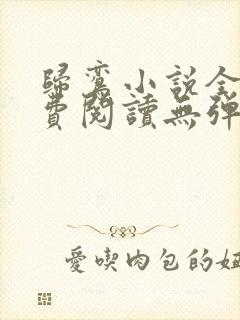 歸鸞小說全
費閱讀無彈
愛喫肉包的妞